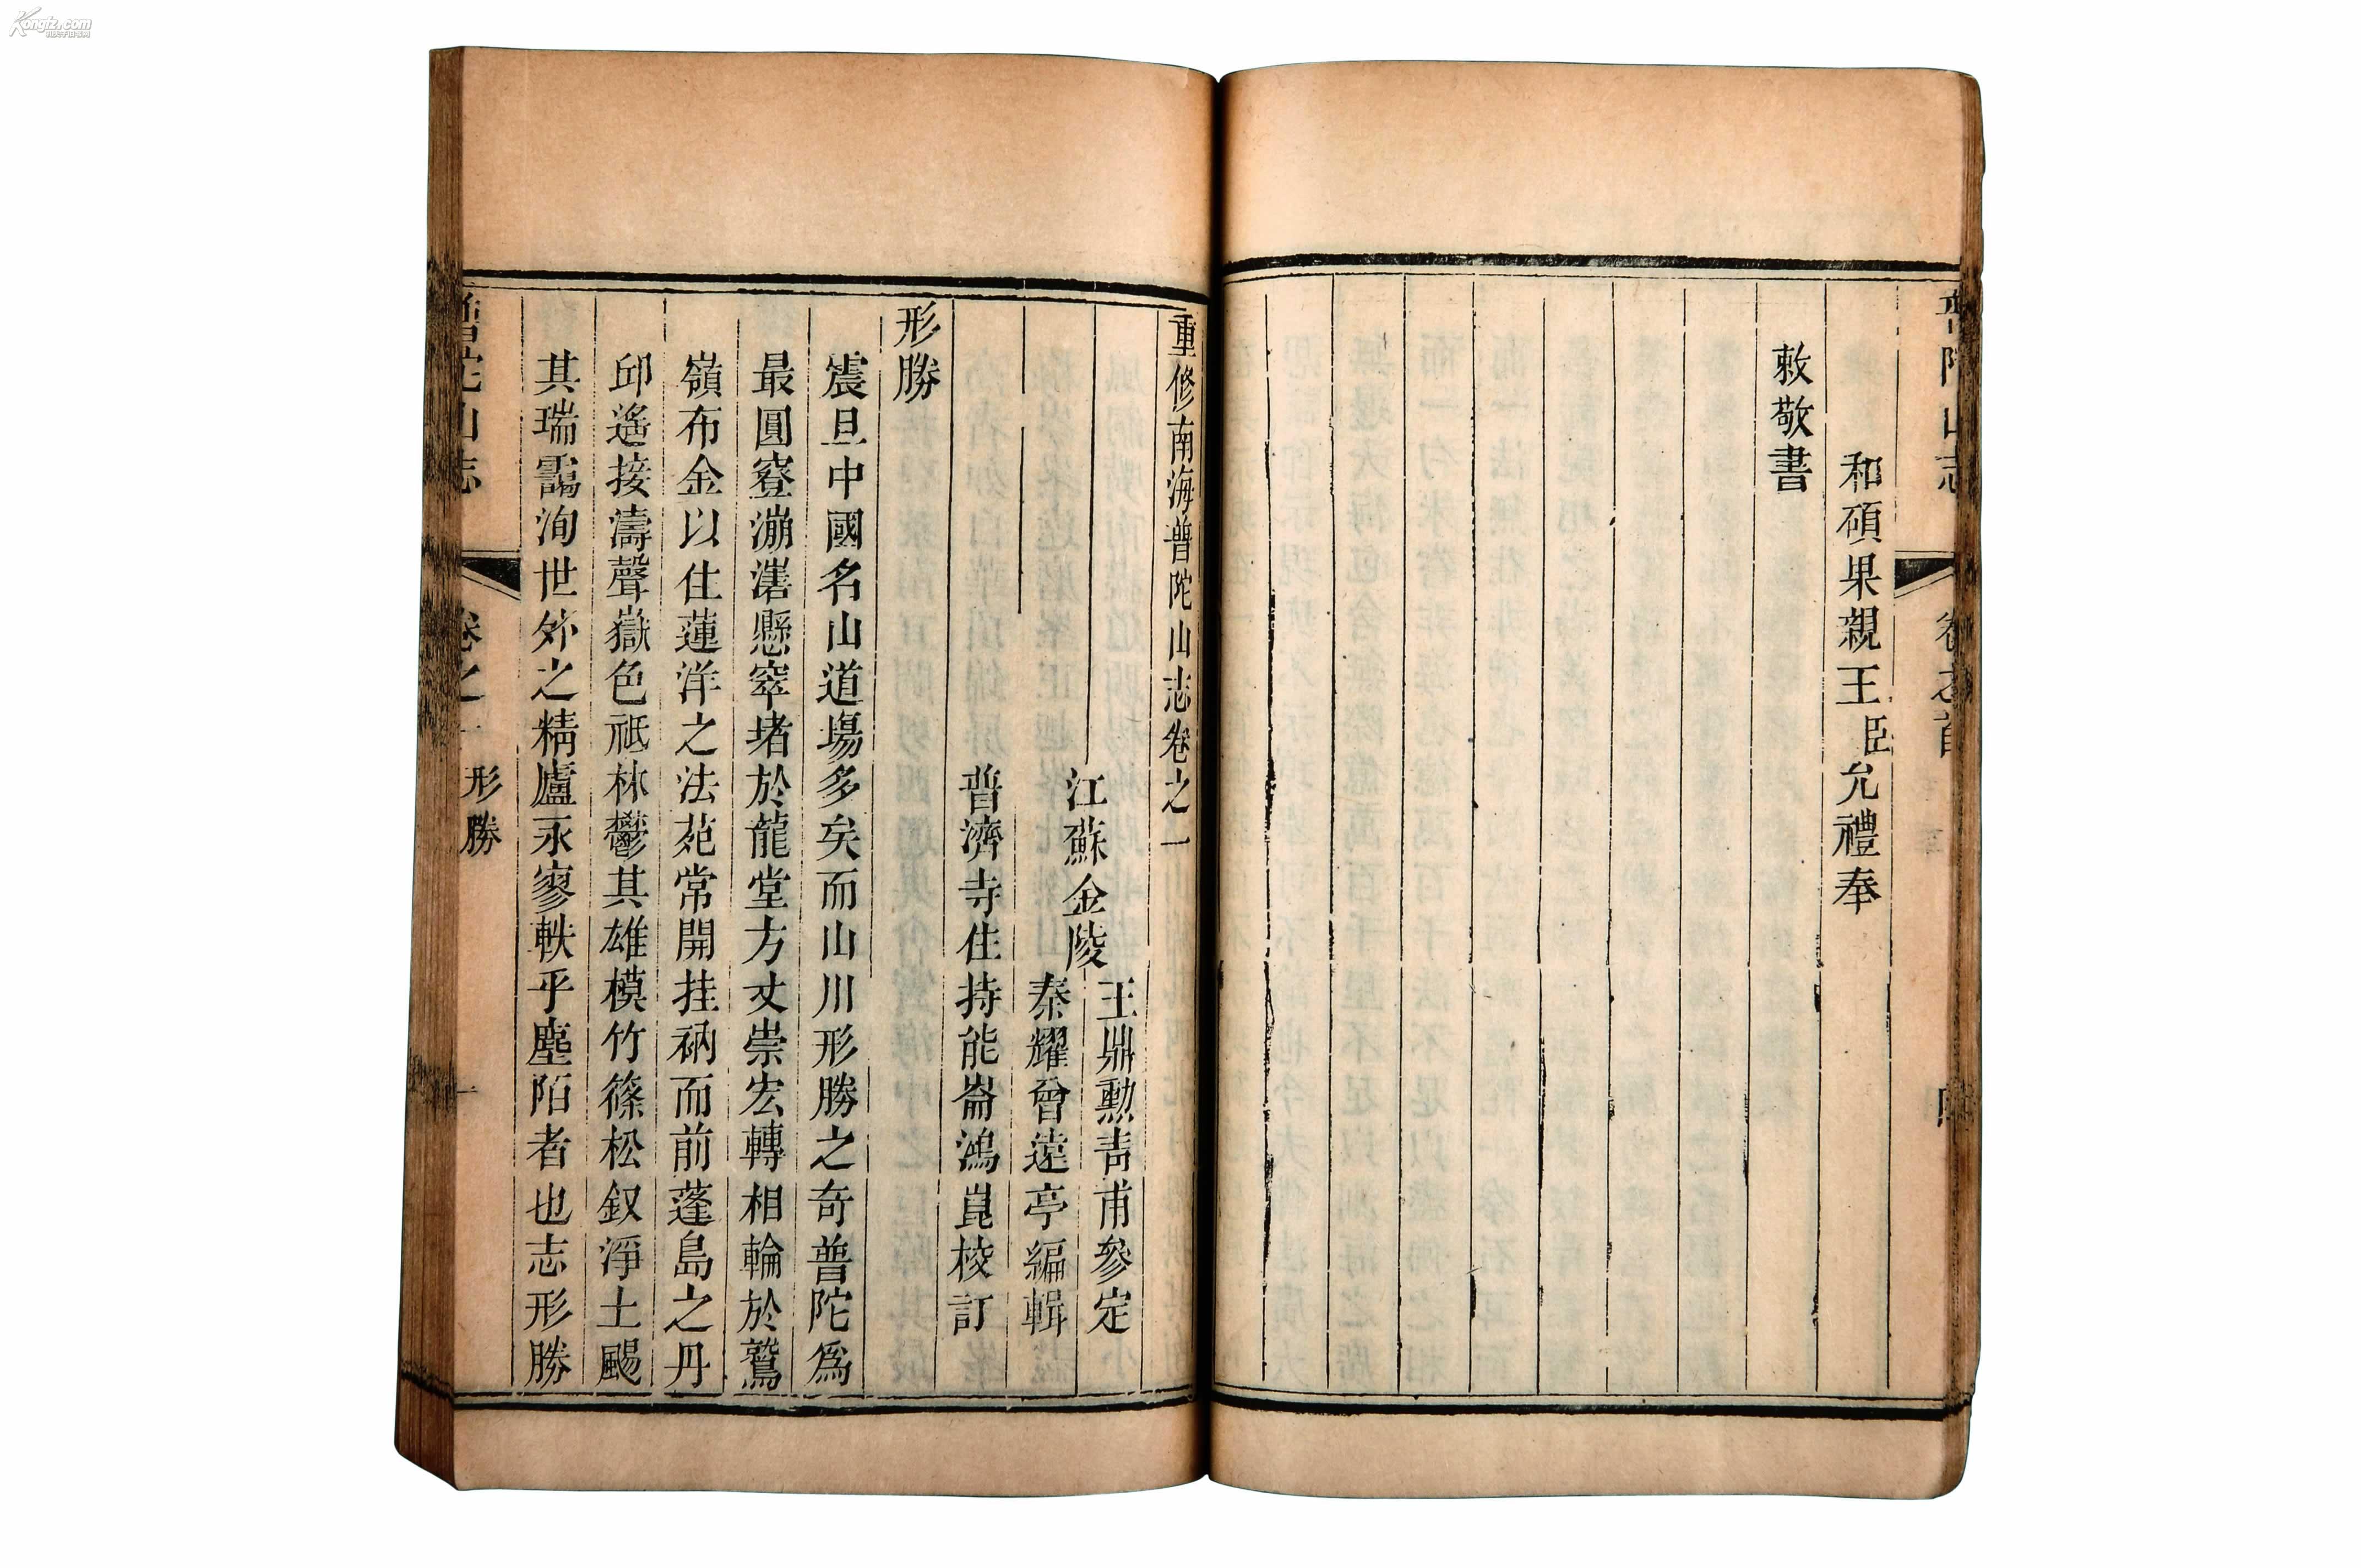 Kongfz.com
普陀山志
卷之首
和碩果親王臣允禮奉
敕敬書
重修南海普陀山志卷之一
江蘇金陵
王鼎勳靑甫參定
秦耀曾遠亭編輯
普濟寺住持能崙鴻崑校訂
形勝
震旦中國名山道場多矣而山川形勝之奇普陀爲
最圓簦漰濐懸窣堵於龍堂方丈崇宏轉相輪於鷲
嶺布金以住蓮洋之法苑常開挂衲而前蓬島之丹
邱遙接濤聲嶽色祗林鬱其雄模竹篠松釵淨土颺
其瑞靄洵世外之精廬永寥軼乎塵陌者也志形勝
普陀山志
卷之一
形勝
一